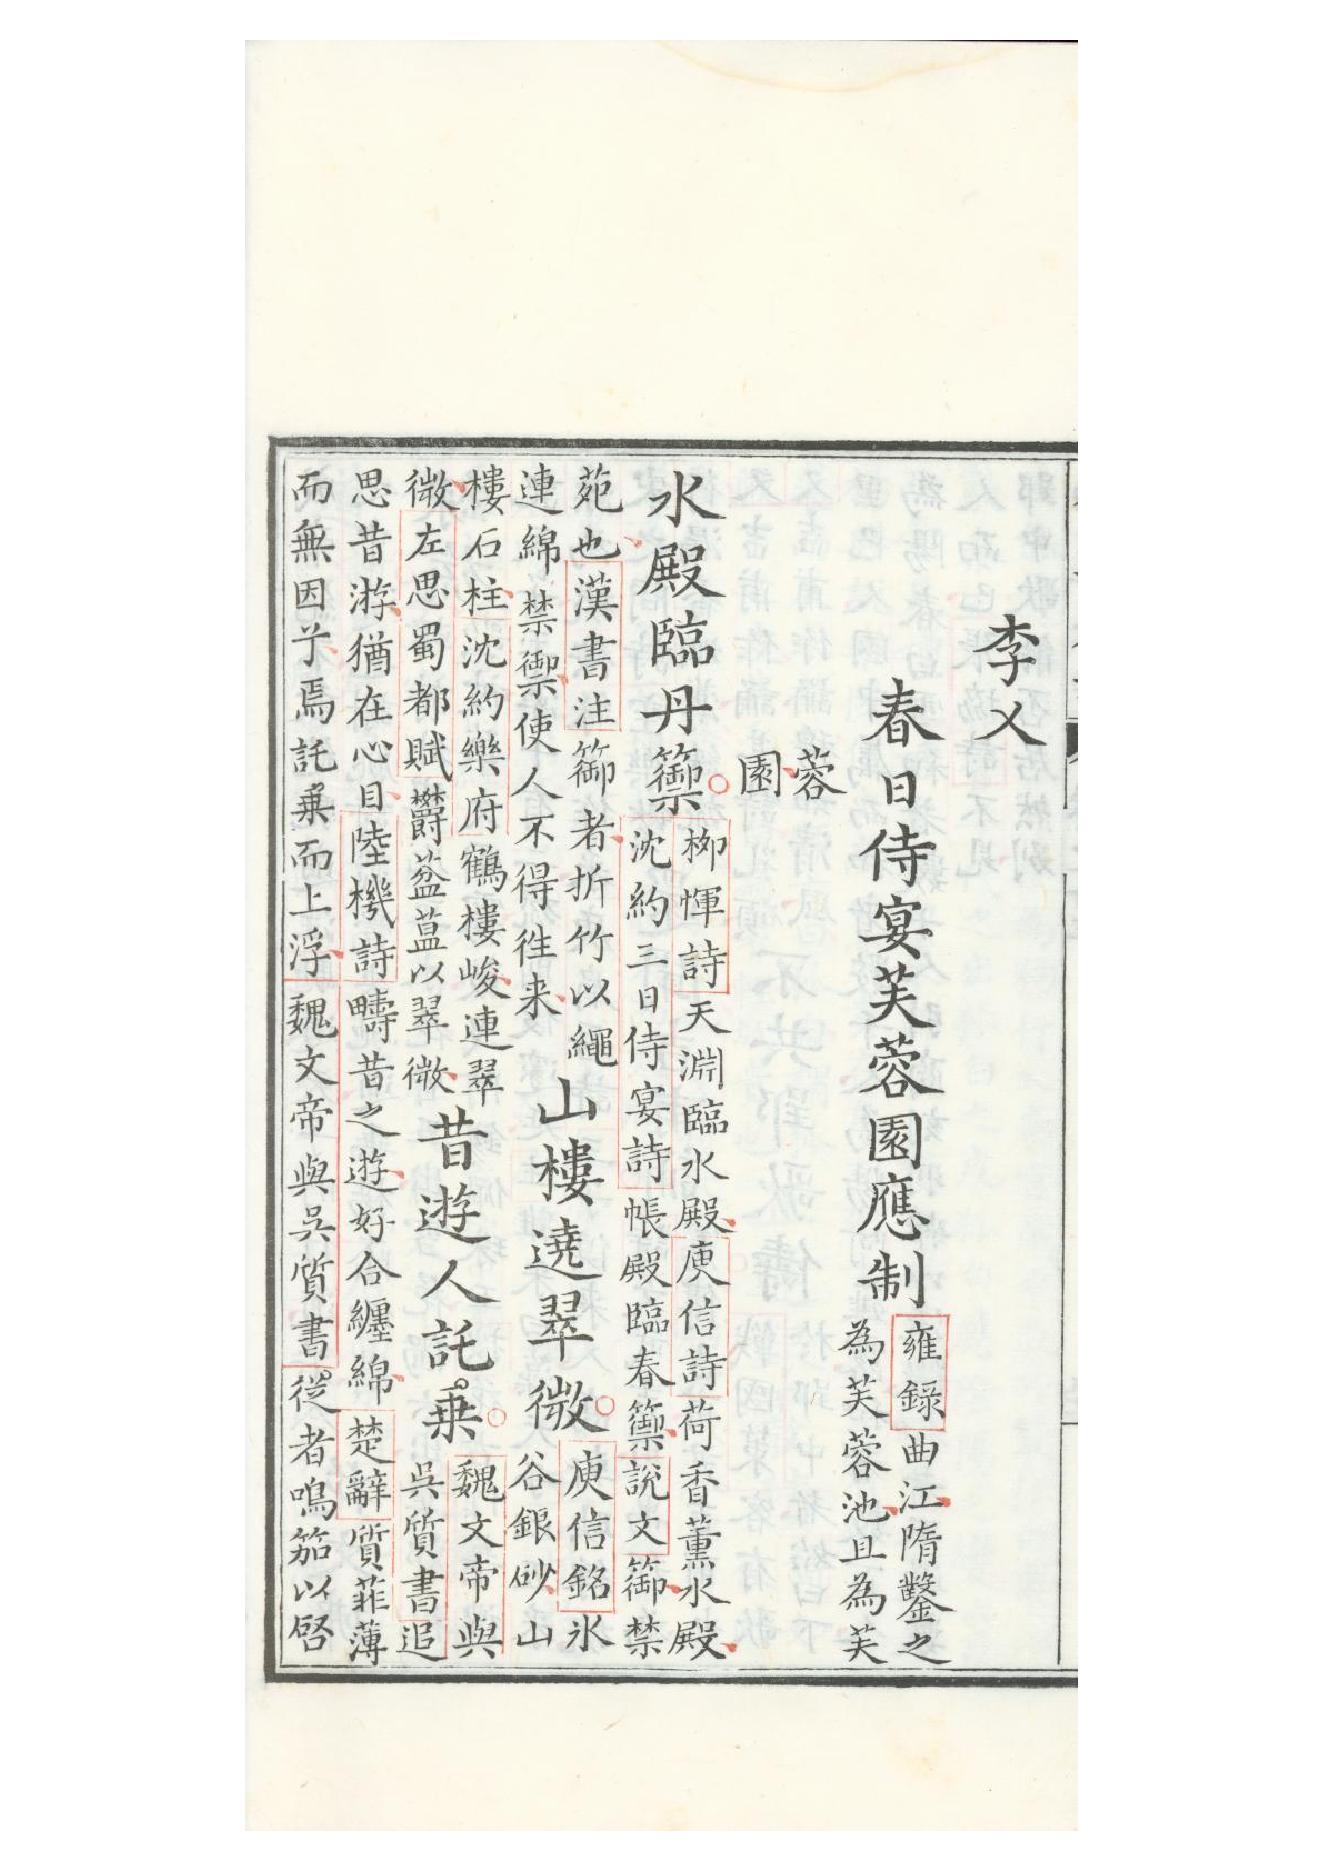 李乂
春日侍宴芙蓉園應制
雍録曲江隋鑿之
為芙蓉池且為芙
蓉
園
水殿臨丹籞
柳惲詩天淵臨水殿庾信詩荷香薰水殿
沈約三日侍宴詩帳殿臨春籞說文篽禁
苑也漢書注篽者折竹以繩
連綿禁禦使人不得徃来
山樓遶翠微
庾信銘氷
谷銀砂山
樓石柱沈約樂府鶴樓峻連翠
微左思蜀都賦欝葐蒀以翠微
昔遊人託乗
魏文帝與
吳質書追
思昔游猶在心目陸機詩疇昔之遊好合纏綿楚辭質菲薄
而無因兮焉託乗而上浮魏文帝與吳質書從者鳴笳以啓